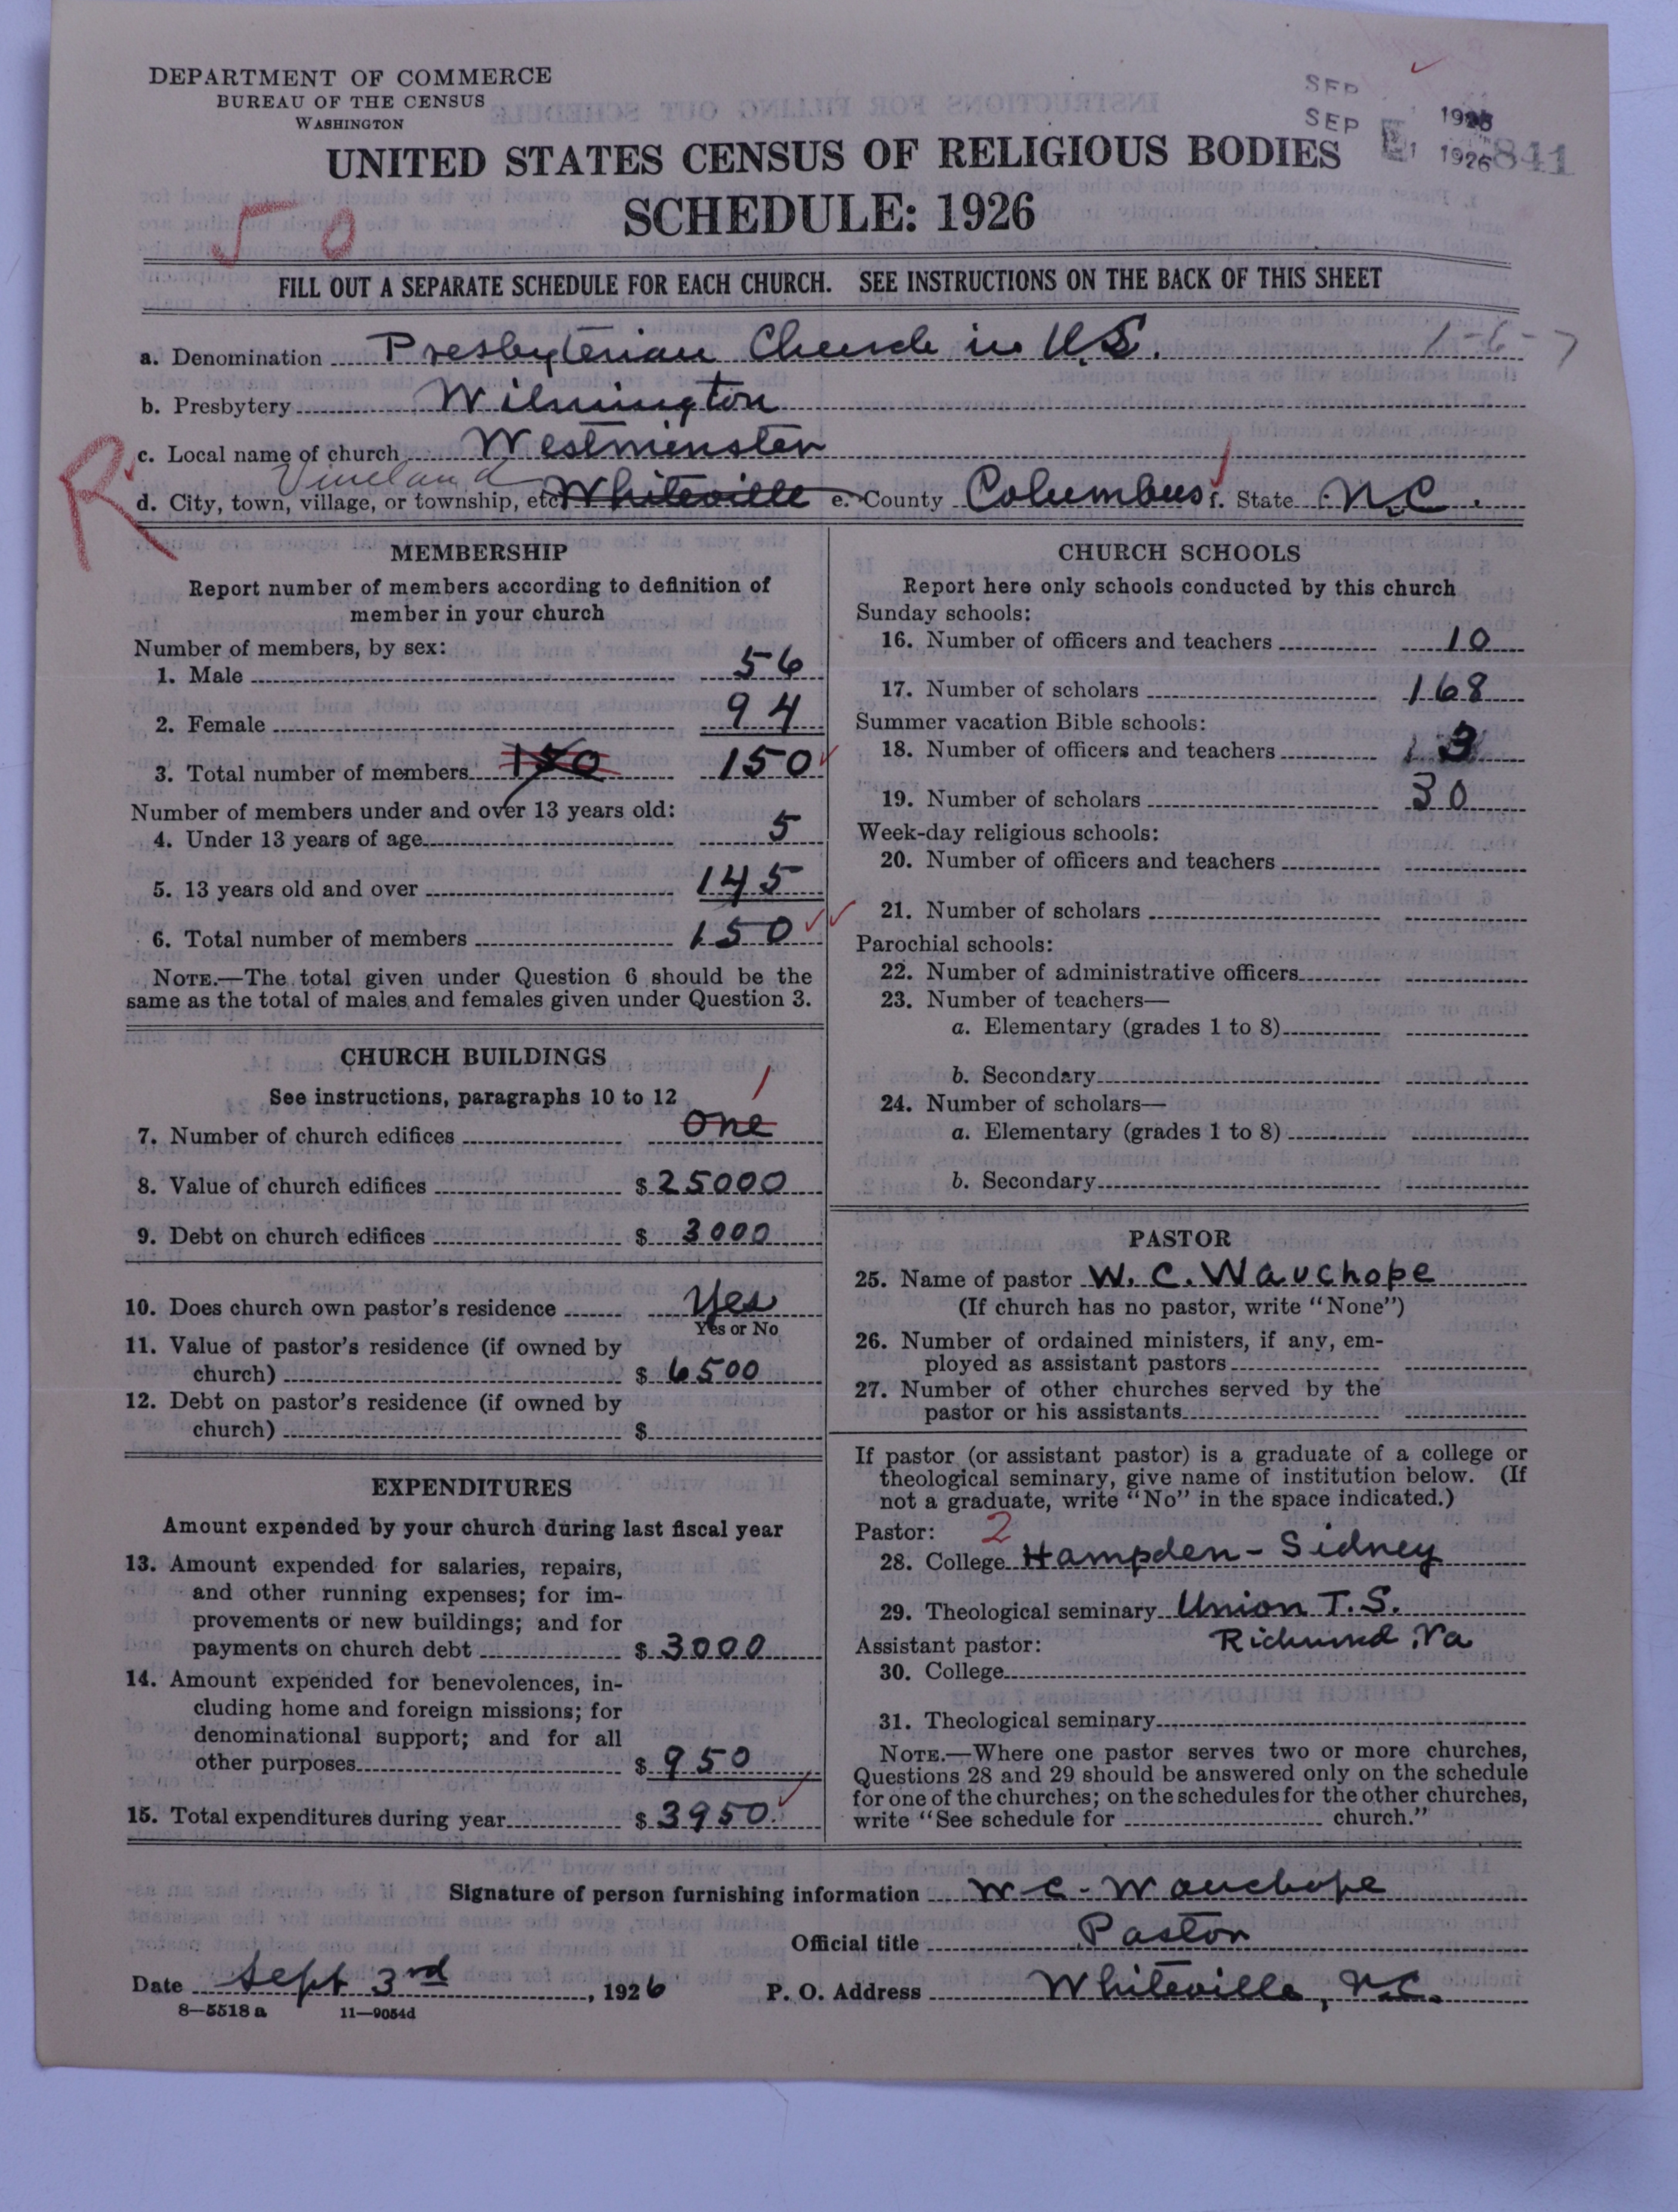 DEPARTMENT OF COMMERCE
BUREAU OF THE CENSUS
WASHINGTON
SEP
SEP 1926
1 1926 841
UNITED STATES CENSUS OF RELIGIOUS BODIES
SCHEDULE: 1926
5 0
FILL OUT A SEPARATE SCHEDULE FOR EACH CHURCH. SEE INSTRUCTIONS ON THE BACK OF THIS SHEET
a. Denomination Presbyterian Church in U.S. 1-6-7
b. Presbytery Wilmington
R
c. Local name of church Westminster
Vineland
d. City, town, village, or township, etc. Whiteville e. County Columbus f. State N.C.
MEMBERSHIP
Report number of members according to definition of
member in your church
Number of members, by sex:
1. Male 56
2. Female 94
3. Total number of members 150 150
Number of members under and over 13 years old:
4. Under 13 years of age 5
5. 13 years old and over 145
6. Total number of members 150
NOTE.—The total given under Question 6 should be the
same as the total of males and females given under Question 3.
CHURCH BUILDINGS
See instructions, paragraphs 10 to 12
1
7. Number of church edifices One
8. Value of church edifices $ 25000
9. Debt on church edifices $ 3000
10. Does church own pastor's residence Yes
Yes or No
11. Value of pastor's residence (if owned by
church) $ 6500
12. Debt on pastor's residence (if owned by
church) $
EXPENDITURES
Amount expended by your church during last fiscal year
13. Amount expended for salaries, repairs,
and other running expenses; for im-
provements or new buildings; and for
payments on church debt $ 3000
14. Amount expended for benevolences, in-
cluding home and foreign missions; for
denominational support; and for all
other purposes $ 950
15. Total expenditures during year $ 3950.
CHURCH SCHOOLS
Report here only schools conducted by this church
Sunday schools:
16. Number of officers and teachers 10
17. Number of scholars 168
Summer vacation Bible schools:
18. Number of officers and teachers 3
19. Number of scholars 30
Week-day religious schools:
20. Number of officers and teachers
21. Number of scholars
Parochial schools:
22. Number of administrative officers
23. Number of teachers—
a. Elementary (grades 1 to 8)
b. Secondary
24. Number of scholars—
a. Elementary (grades 1 to 8)
b. Secondary
PASTOR
25. Name of pastor W. C. Wauchope
(If church has no pastor, write "None")
26. Number of ordained ministers, if any, em-
ployed as assistant pastors
27. Number of other churches served by the
pastor or his assistants
If pastor (or assistant pastor) is a graduate of a college or
theological seminary, give name of institution below. (If
not a graduate, write "No" in the space indicated.)
Pastor: 2
28. College Hampden-Sidney
29. Theological seminary Union T.S.
Assistant pastor: Richmond, Va
30. College
31. Theological seminary
NOTE.—Where one pastor serves two or more churches,
Questions 28 and 29 should be answered only on the schedule
for one of the churches; on the schedules for the other churches,
write "See schedule for church."
Signature of person furnishing information W C. Wauchope
Official title Pastor
Date Sept 3rd, 1926 P. O. Address Whiteville, N.C.
8—5518 a 11—9054d